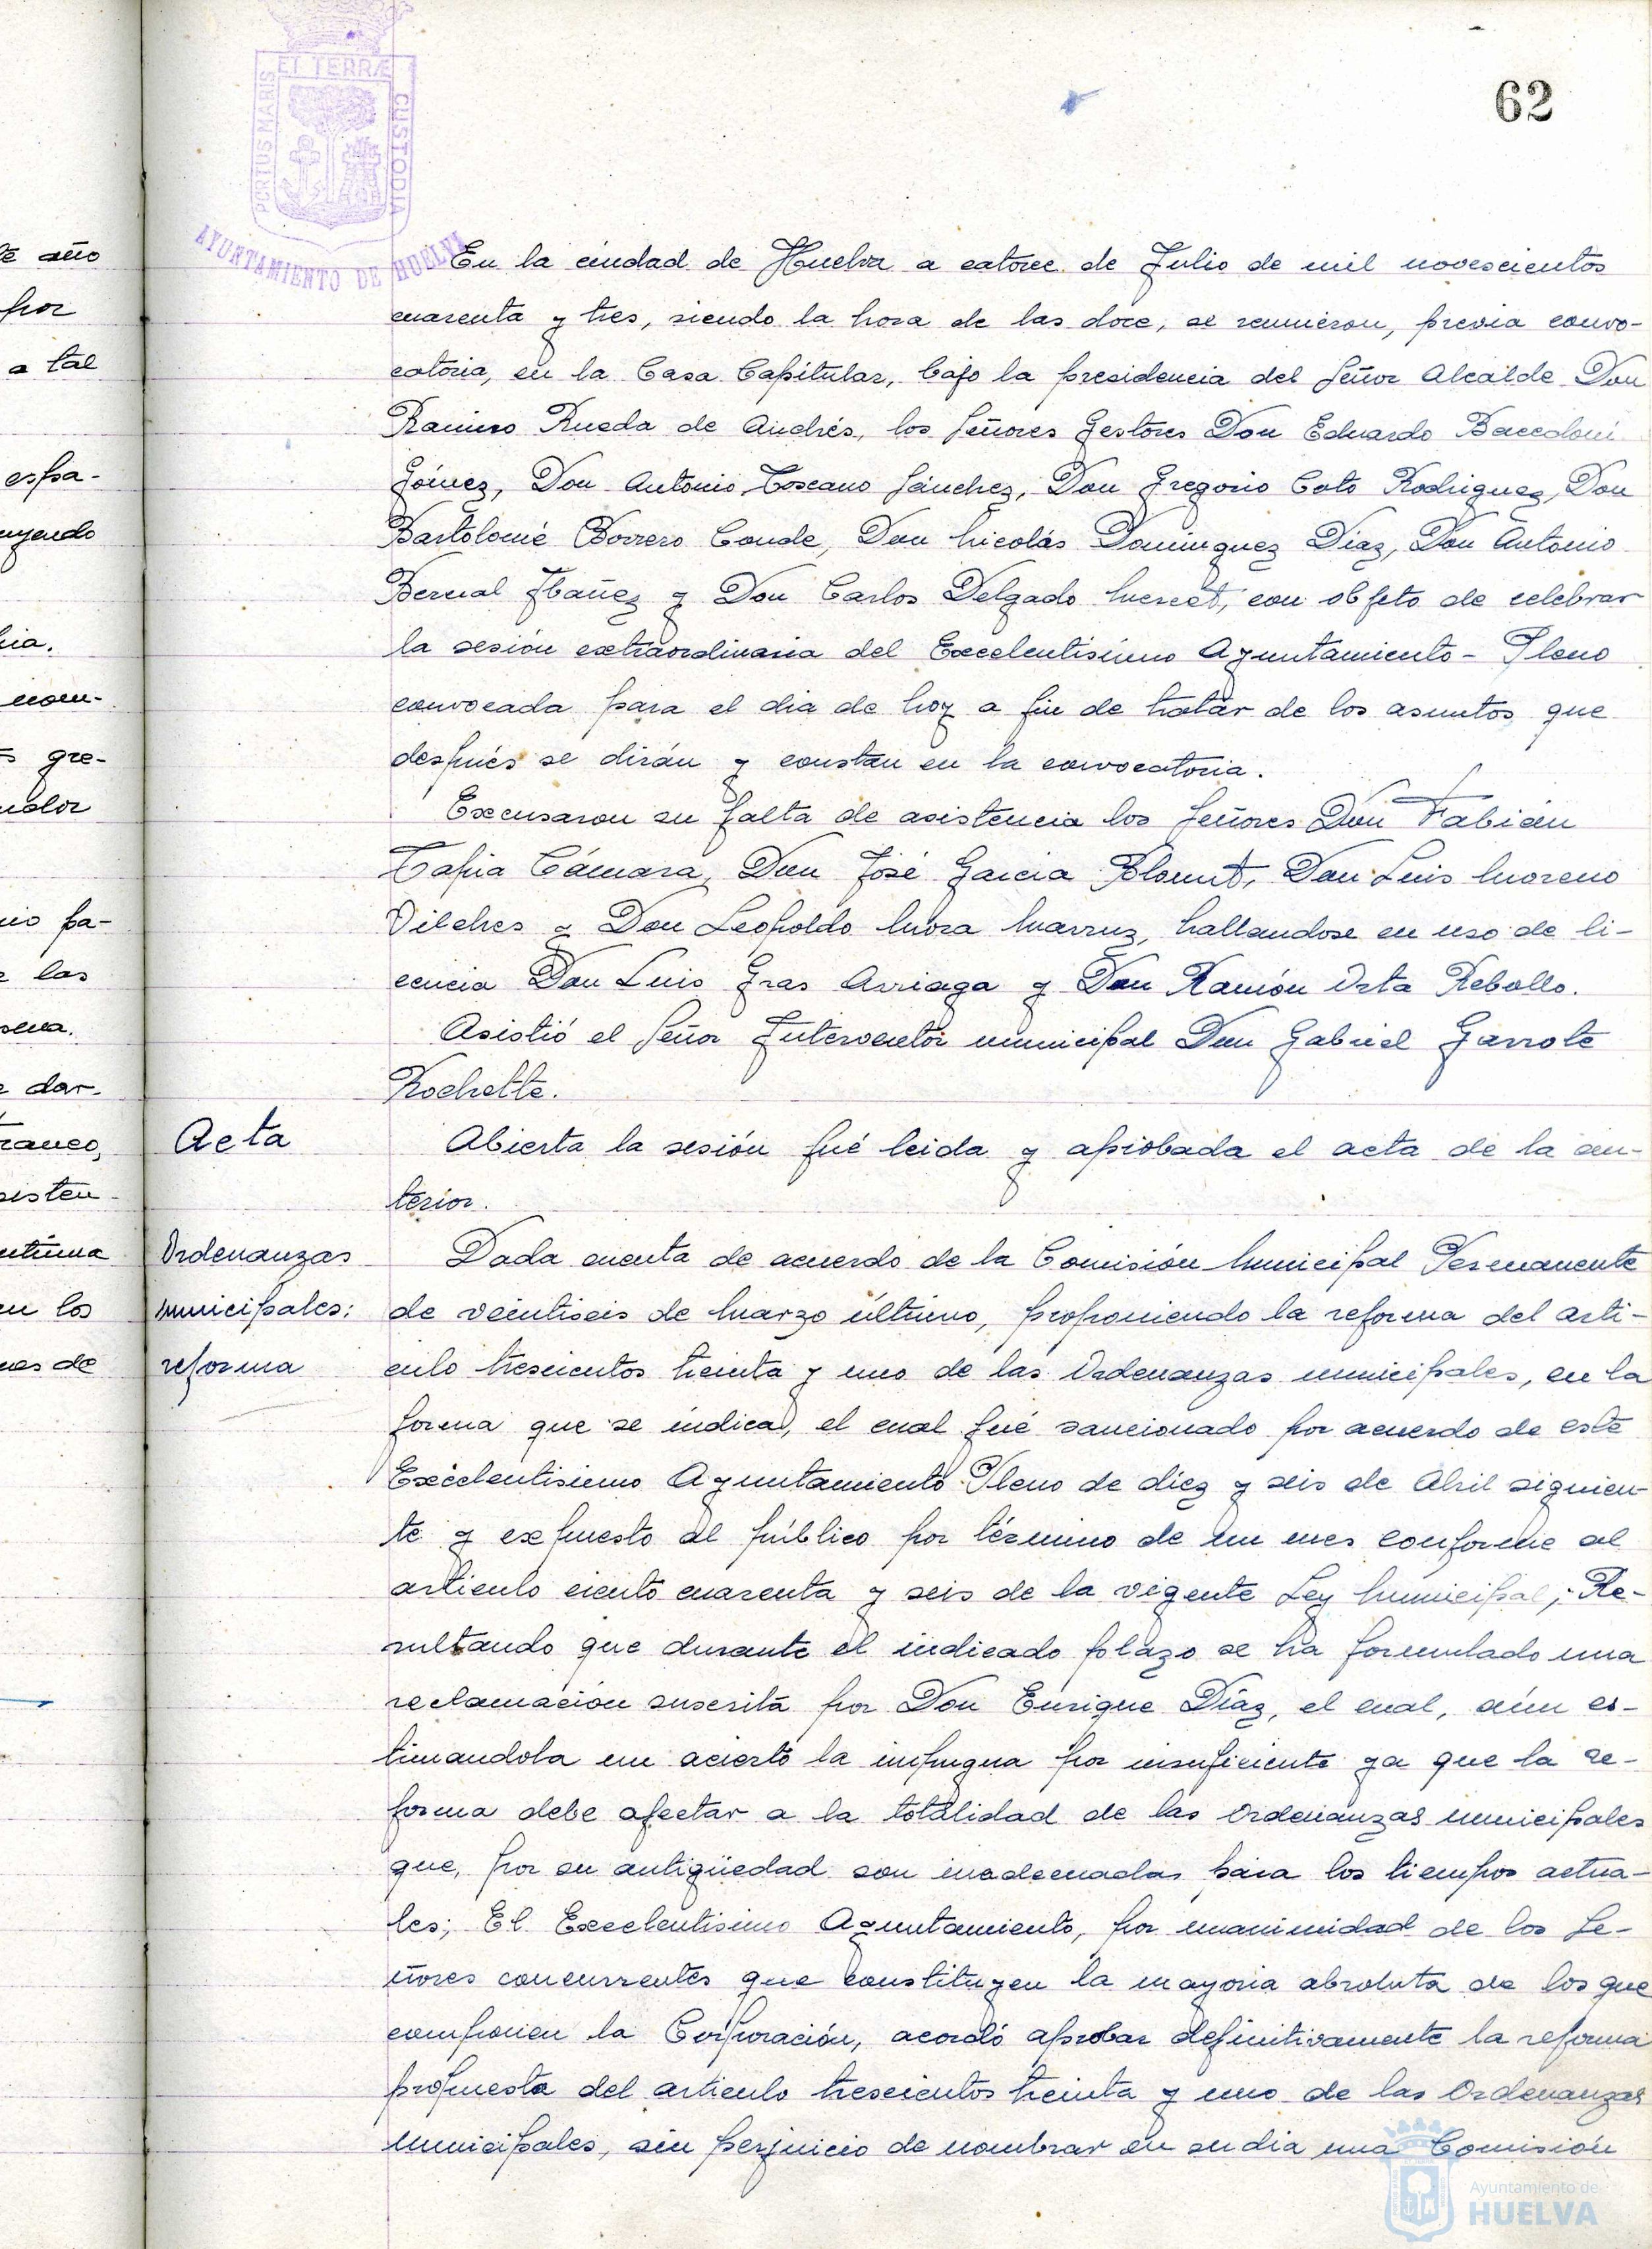 62
PORTUS MARIS
ET TERRÆ
CUSTODIA
AYUNTAMIENTO DE HUELVA
te año
por
a tal
espa-
uyendo
nom-
gre-
pa-
las
dar-
en los
nes de
En la ciudad de Huelva a catorce de Julio de mil novescientos
cuarenta y tres, siendo la hora de las doce, se reunieron, previa convo-
catoria, en la Casa Capitular, bajo la presidencia del Señor Alcalde Don
Ramiro Rueda de Andrés, los Señores Gestores Don Eduardo Baccdoni
Gómez, Don Antonio Toscano Sánchez, Don Gregorio Coto Rodriguez, Don
Bartolomé Borrero Conde, Don Nicolás Dominguez Diaz, Don Antonio
Bernal Ibañez y Don Carlos Delgado Mercet, con objeto de celebrar
la sesión extraordinaria del Excelentisimo Ayuntamiento - Pleno
convocada para el dia de hoy a fin de tratar de los asuntos que
después se dirán y constan en la convocatoria.
Excusaron su falta de asistencia los Señores Don Fabián
Tapia Cámara, Don José Garcia Blomt, Don Luis Moreno
Vilches y Don Leopoldo Mora Marruz, hallandose en uso de li-
cencia Don Luis Gras Arriaga y Don Ramón Orta Rebollo.
Asistió el Señor Interventor municipal Don Gabriel Garrote
Rochette.
Acta
Abierta la sesión fué leida y aprobada el acta de la an-
terior.
Ordenanzas
municipales:
reforma
Dada cuenta de acuerdo de la Comisión Municipal Permanente
de veintiseis de Marzo último, proponiendo la reforma del arti-
culo trescientos treinta y uno de las Ordenanzas municipales, en la
forma que se indica, el cual fué sancionado por acuerdo de este
Excelentisimo Ayuntamiento Pleno de diez y seis de Abril siguien-
te y expuesto al público por término de un mes conforme al
articulo ciento cuarenta y seis de la vigente Ley Municipal; Re-
sultando que durante el indicado plazo se ha formulado una
reclamación suscrita por Don Enrique Díaz, el cual, aún es-
timandola un acierto la impugna por insuficiente ya que la re-
forma debe afectar a la totalidad de las Ordenanzas municipales
que, por su antigüedad son inadecuadas para los tiempos actua-
les; El Excelentisimo Ayuntamiento, por unanimidad de los Se-
ñores concurrentes que constituyen la mayoria absoluta de los que
componen la Corporación, acordó aprobar definitivamente la reforma
propuesta del articulo trescientos treinta y uno de las Ordenanzas
municipales, sin perjuicio de nombrar en su dia una Comisión
Ayuntamiento de
HUELVA